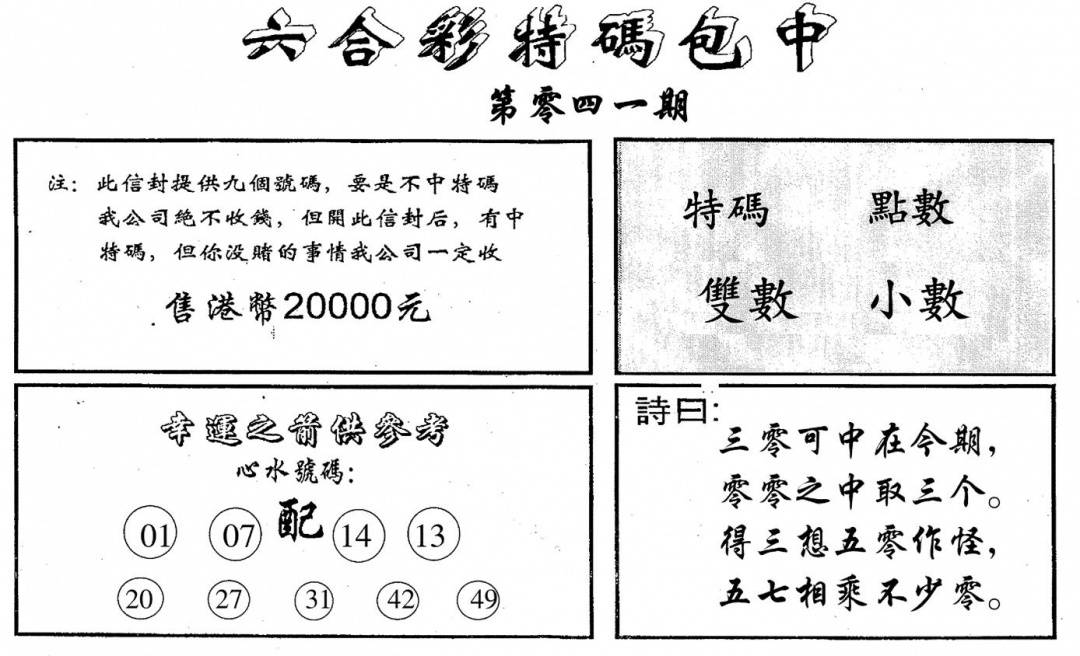 六合彩特碼包中
第零四一期
注：此信封提供九個號碼，要是不中特碼
我公司絕不收錢，但開此信封后，有中
特碼，但你没賭的事情我公司一定收
售港幣20000元
特碼 點數
雙數 小數
幸運之箭供參考
心水號碼：
01 07 配 14 13
20 27 31 42 49
詩曰：
三零可中在今期，
零零之中取三个。
得三想五零作怪，
五七相乘不少零。